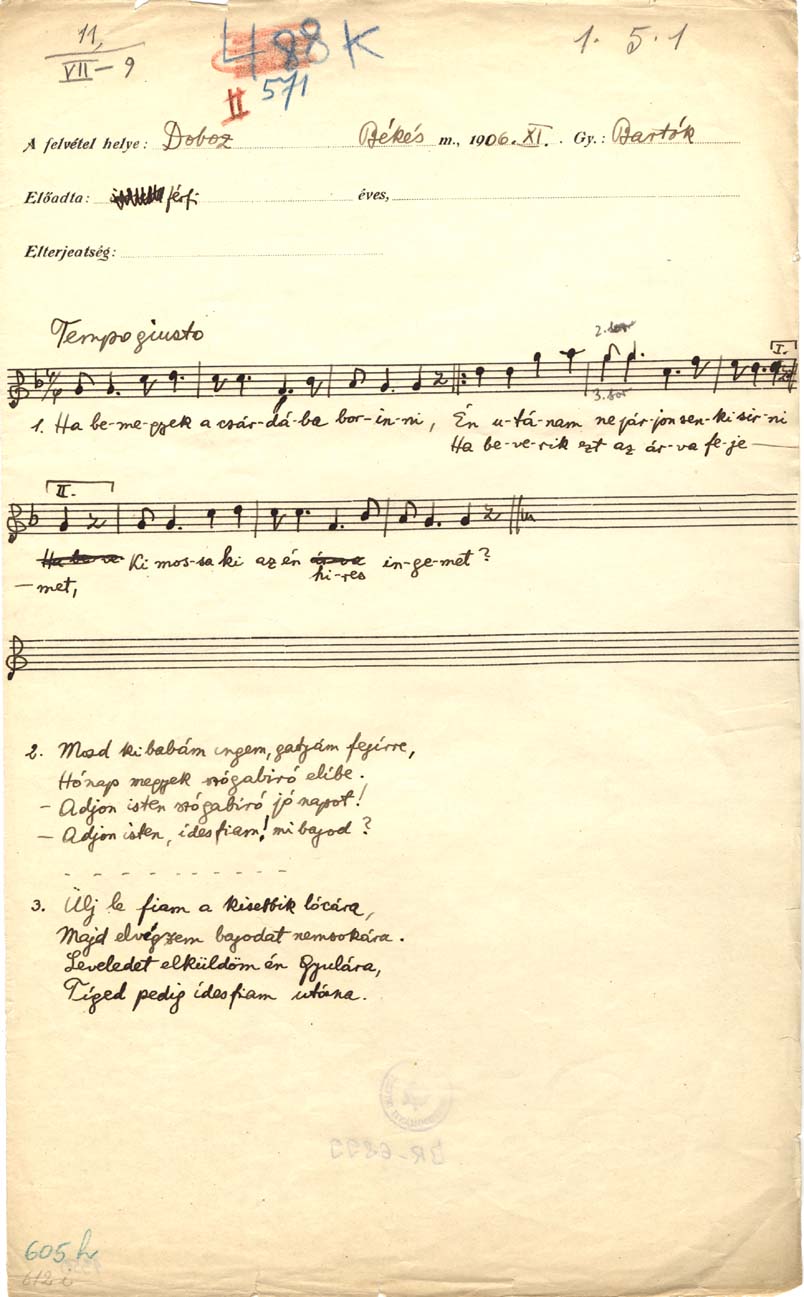 11,
VII-9
488 K
II 571
1. 5. 1
A felvétel helye: Doboz Békés m., 1906. XI. Gy.: Bartók
Előadta: férfi éves,
Elterjeatség:
Tempo giusto
2. sor
I.
3. sor
1. Ha be-me-gyek a csár-dá-ba bor-in-ni, Én u-tá-nam ne jár-jon sen-ki sir-ni
Ha be-ve-rik ezt az ár-va fe-je —
II.
Ha be-ve- Ki mos-sa ki az én ár-va in-ge-met?
hi-res
— met,
2. Mosd ki babám ingem, gatyám fejírre,
Hónap megyek szógabiró elibe.
- Adjon isten szógabiró jó napot!
- Adjon isten, ídesfiam! mi bajod?
- - - - - - - - - -
3. Ülj le fiam a kisebbik lócára,
Majd elvégzem bajodat nemsokára.
Leveledet elküldöm én Gyulára,
Tíged pedig ídesfiam utána.
605 h
612 i